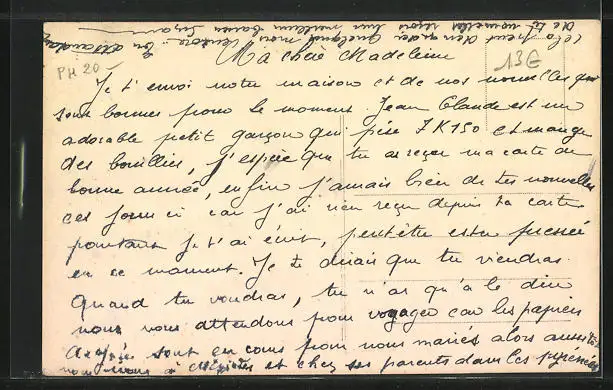 Ma chère Madeleine
PH 20-
13E
Je t'envoi notre maison et de nos nouvelles qui
sont bonnes pour le moment. Jean Claude est un
adorable petit garçon qui pèse 7K150 et mange
des bouillies, j'espère que tu as reçu ma carte de
bonne année, enfin j'amais bien de tes nouvelles
ces jours ci car j'ai rien reçu depuis ta carte
pourtant je t'ai écrit, peut être es tu pressée
en ce moment. Je te dirais que tu viendras
quand tu voudras, tu n'as qu'à le dire
nous vous attendons pour voyager car les papiers
sont en cours pour nous mariés alors aussitôt
nous irons à et chez ses parents dans les Pyrenées
En attendant
de tes nouvelles reçois nos meilleurs baisers